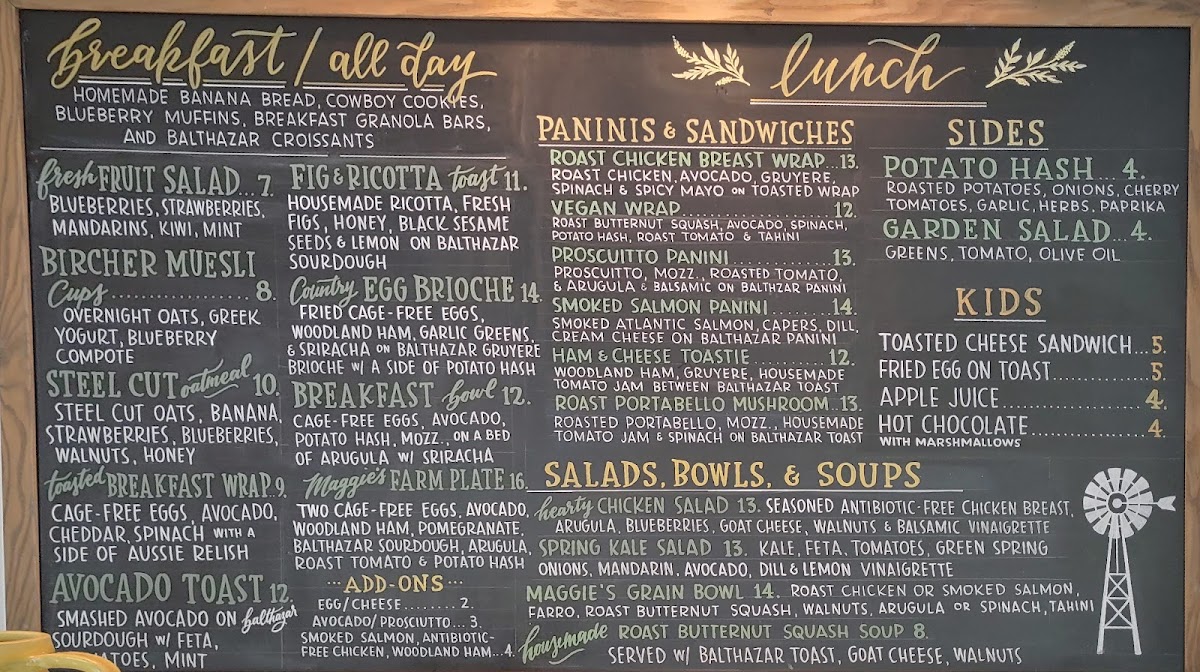 breakfast / all day
HOMEMADE BANANA BREAD, COWBOY COOKIES,
BLUEBERRY MUFFINS, BREAKFAST GRANOLA BARS,
AND BALTHAZAR CROISSANTS
fresh FRUIT SALAD...7
BLUEBERRIES, STRAWBERRIES,
MANDARINS, KIWI, MINT
BIRCHER MUESLI
Cups................8.
OVERNIGHT OATS, GREEK
YOGURT, BLUEBERRY
COMPOTE
STEEL CUT oatmeal 10.
STEEL CUT OATS, BANANA,
STRAWBERRIES, BLUEBERRIES,
WALNUTS, HONEY
toasted BREAKFAST WRAP..9.
CAGE-FREE EGGS, AVOCADO,
CHEDDAR, SPINACH WITH A
SIDE OF AUSSIE RELISH
AVOCADO TOAST 12.
SMASHED AVOCADO ON balthazar
SOURDOUGH W/ FETA,
MINT
FIG & RICOTTA toast 11.
HOUSEMADE RICOTTA, FRESH
FIGS, HONEY, BLACK SESAME
SEEDS & LEMON ON BALTHAZAR
SOURDOUGH
Country EGG BRIOCHE 14.
FRIED CAGE-FREE EGGS,
WOODLAND HAM, GARLIC GREENS,
& SRIRACHA ON BALTHAZAR GRUYERE
BRIOCHE W/ A SIDE OF POTATO HASH
BREAKFAST bowl 12.
CAGE-FREE EGGS, AVOCADO,
POTATO HASH, MOZZ., ON A BED
OF ARUGULA W/ SRIRACHA
Maggie's FARM PLATE 16.
TWO CAGE-FREE EGGS, AVOCADO,
WOODLAND HAM, POMEGRANATE,
BALTHAZAR SOURDOUGH, ARUGULA,
ROAST TOMATO & POTATO HASH
...ADD-ONS...
EGG/CHEESE........2.
AVOCADO/PROSCIUTTO...3.
SMOKED SALMON, ANTIBIOTIC-
FREE CHICKEN, WOODLAND HAM...4.
lunch
PANINIS & SANDWICHES
ROAST CHICKEN BREAST WRAP...13.
ROAST CHICKEN, AVOCADO, GRUYERE,
SPINACH & SPICY MAYO ON TOASTED WRAP
VEGAN WRAP....................12.
ROAST BUTTERNUT SQUASH, AVOCADO, SPINACH,
POTATO HASH, ROAST TOMATO & TAHINI
PROSCUITTO PANINI.............13.
PROSCUITTO, MOZZ., ROASTED TOMATO,
& ARUGULA & BALSAMIC ON BALTHZAR PANINI
SMOKED SALMON PANINI........14
SMOKED ATLANTIC SALMON, CAPERS, DILL,
CREAM CHEESE ON BALTHAZAR PANINI
HAM & CHEESE TOASTIE..........12.
WOODLAND HAM, GRUYERE, HOUSEMADE
TOMATO JAM BETWEEN BALTHAZAR TOAST
ROAST PORTABELLO MUSHROOM..13.
ROASTED PORTABELLO, MOZZ., HOUSEMADE
TOMATO JAM & SPINACH ON BALTHAZAR TOAST
SIDES
POTATO HASH...4.
ROASTED POTATOES, ONIONS, CHERRY
TOMATOES, GARLIC, HERBS, PAPRIKA
GARDEN SALAD...4.
GREENS, TOMATO, OLIVE OIL
KIDS
TOASTED CHEESE SANDWICH...5.
FRIED EGG ON TOAST............5.
APPLE JUICE....................4.
HOT CHOCOLATE................4.
WITH MARSHMALLOWS
SALADS, BOWLS, & SOUPS
hearty CHICKEN SALAD 13. SEASONED ANTIBIOTIC-FREE CHICKEN BREAST,
ARUGULA, BLUEBERRIES, GOAT CHEESE, WALNUTS & BALSAMIC VINAIGRETTE
SPRING KALE SALAD 13. KALE, FETA, TOMATOES, GREEN SPRING
ONIONS, MANDARIN, AVOCADO, DILL & LEMON VINAIGRETTE
MAGGIE'S GRAIN BOWL 14. ROAST CHICKEN OR SMOKED SALMON,
FARRO, ROAST BUTTERNUT SQUASH, WALNUTS, ARUGULA OR SPINACH, TAHINI
housemade ROAST BUTTERNUT SQUASH SOUP 8.
SERVED W/ BALTHAZAR TOAST, GOAT CHEESE, WALNUTS